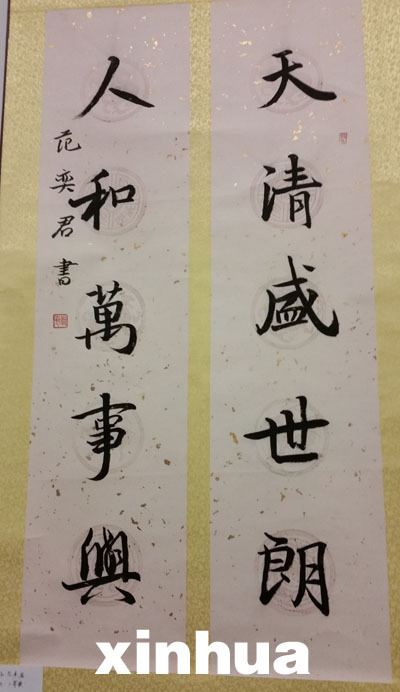 天清盛世朗
人和萬事興
范奕君書
xinhua